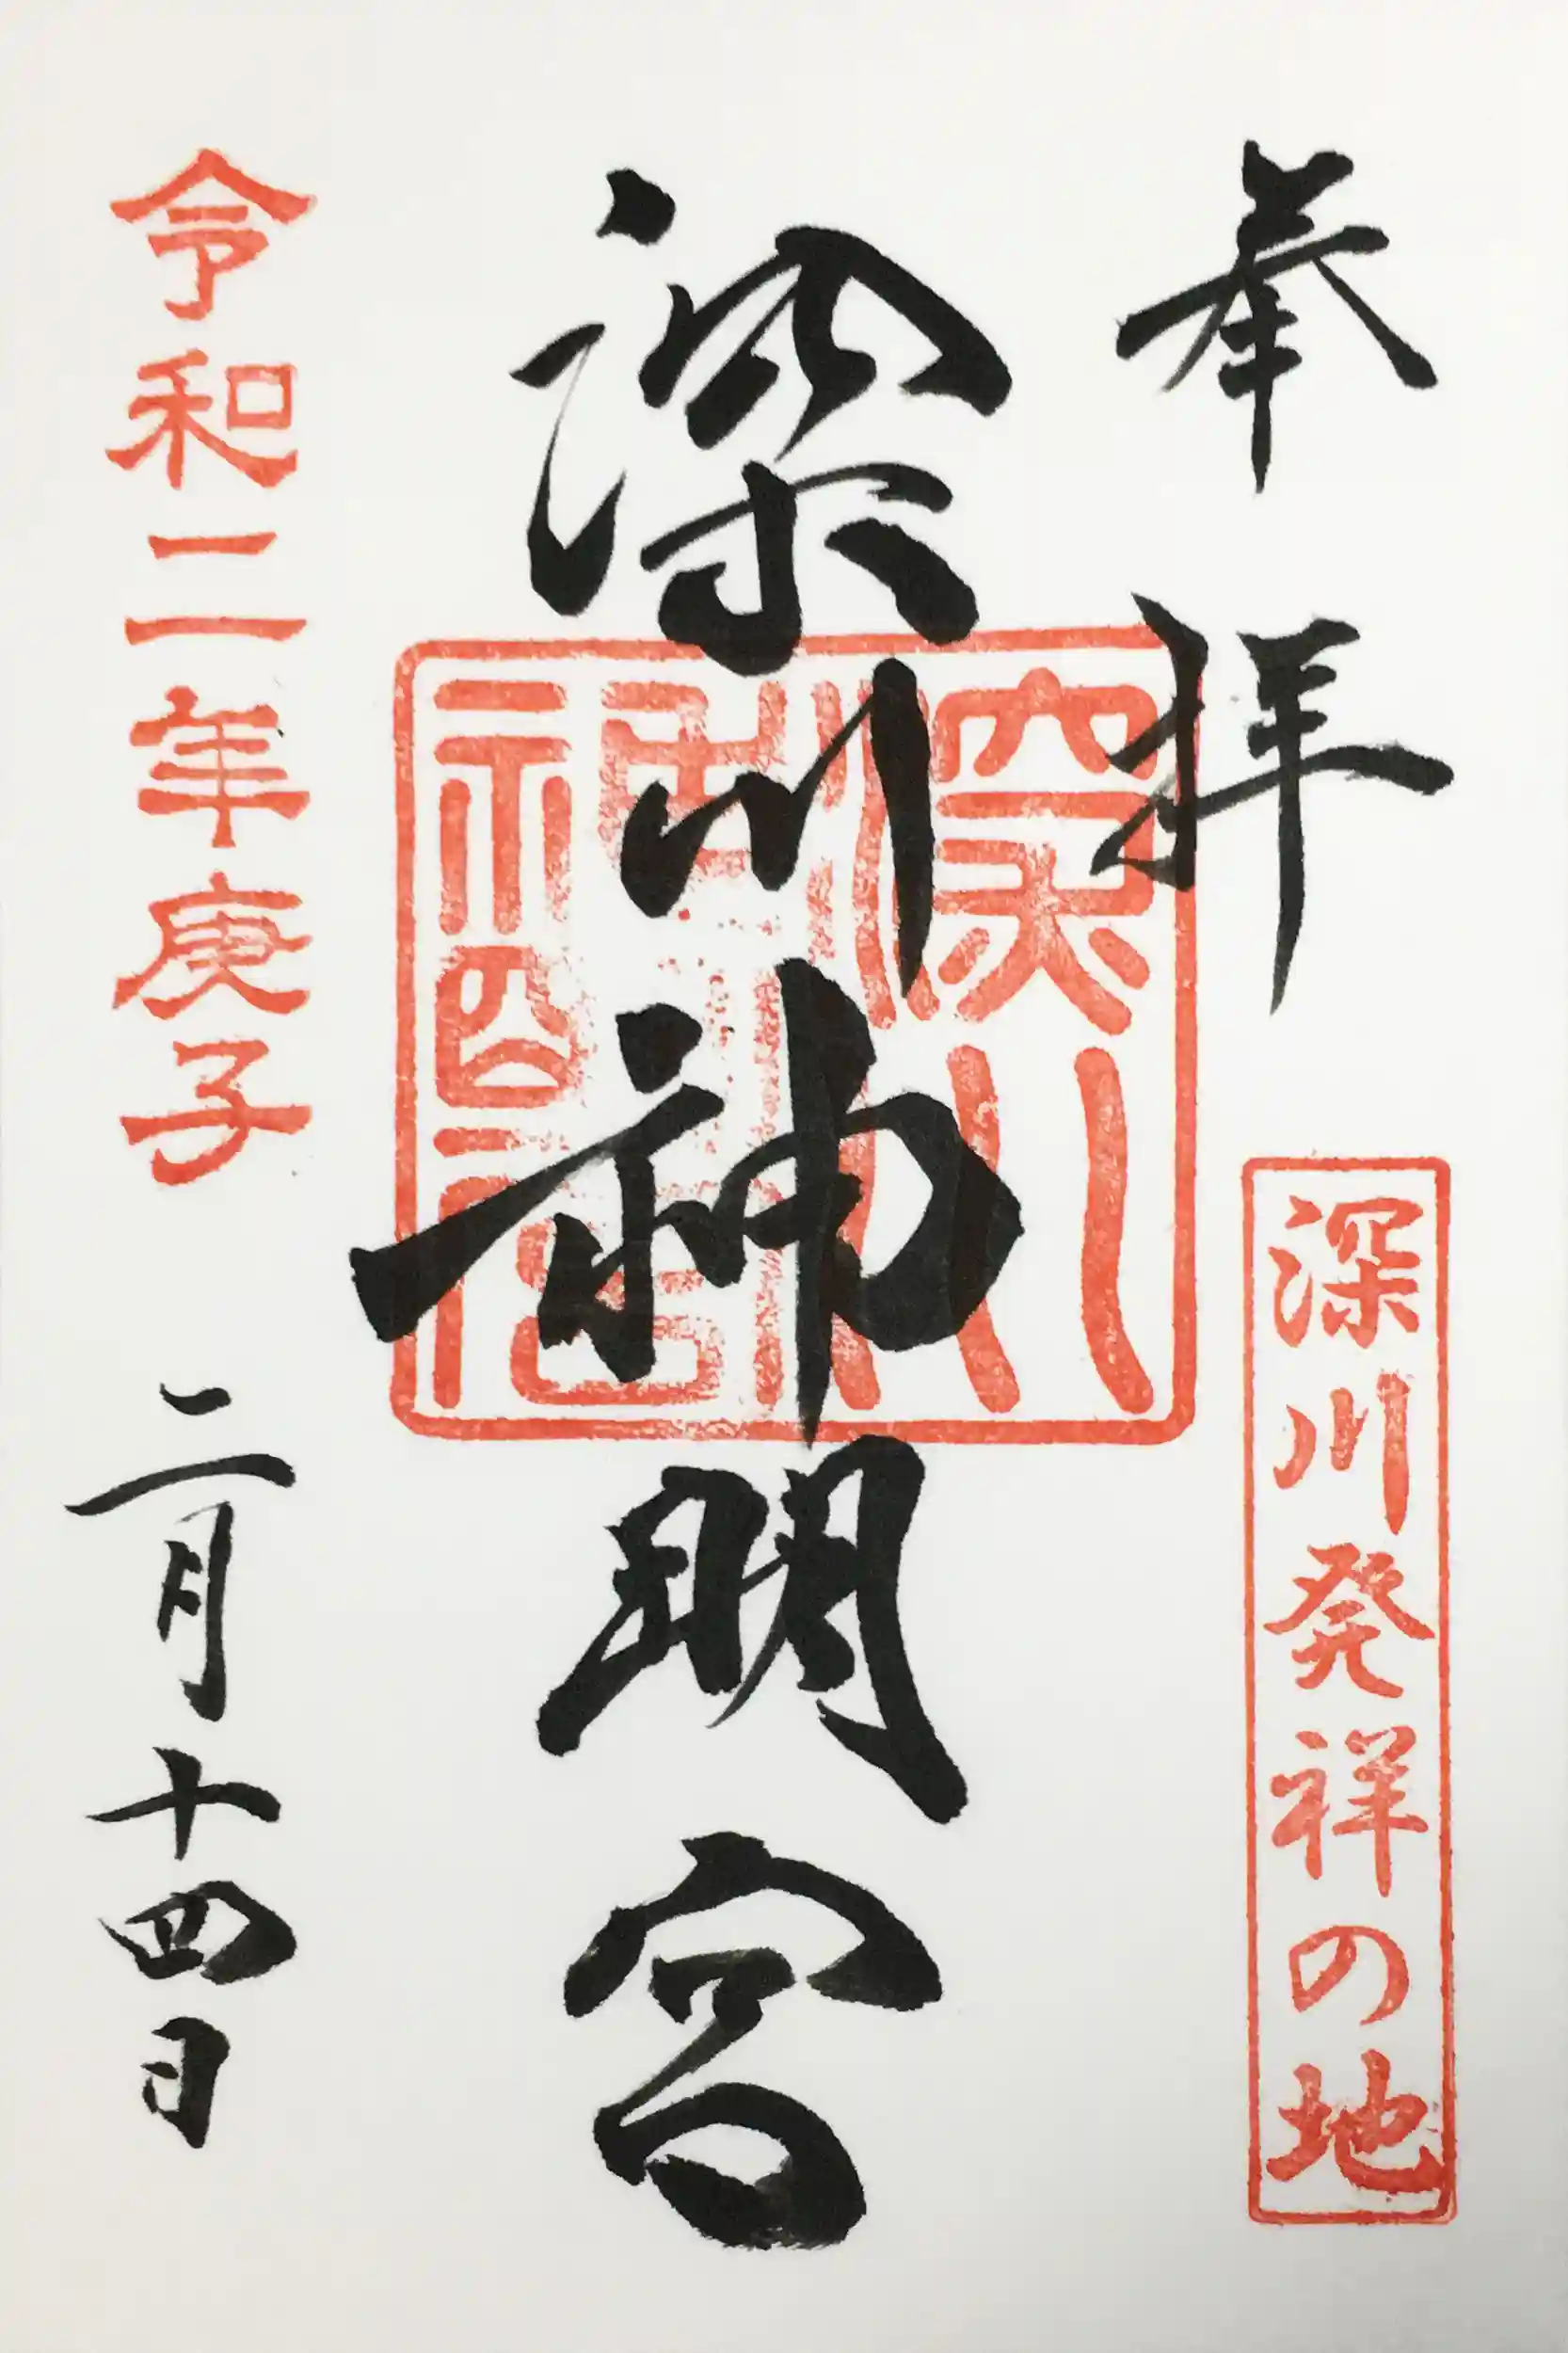 奉拝
深川発祥の地
深川神明宮
令和二年庚子
二月十四日